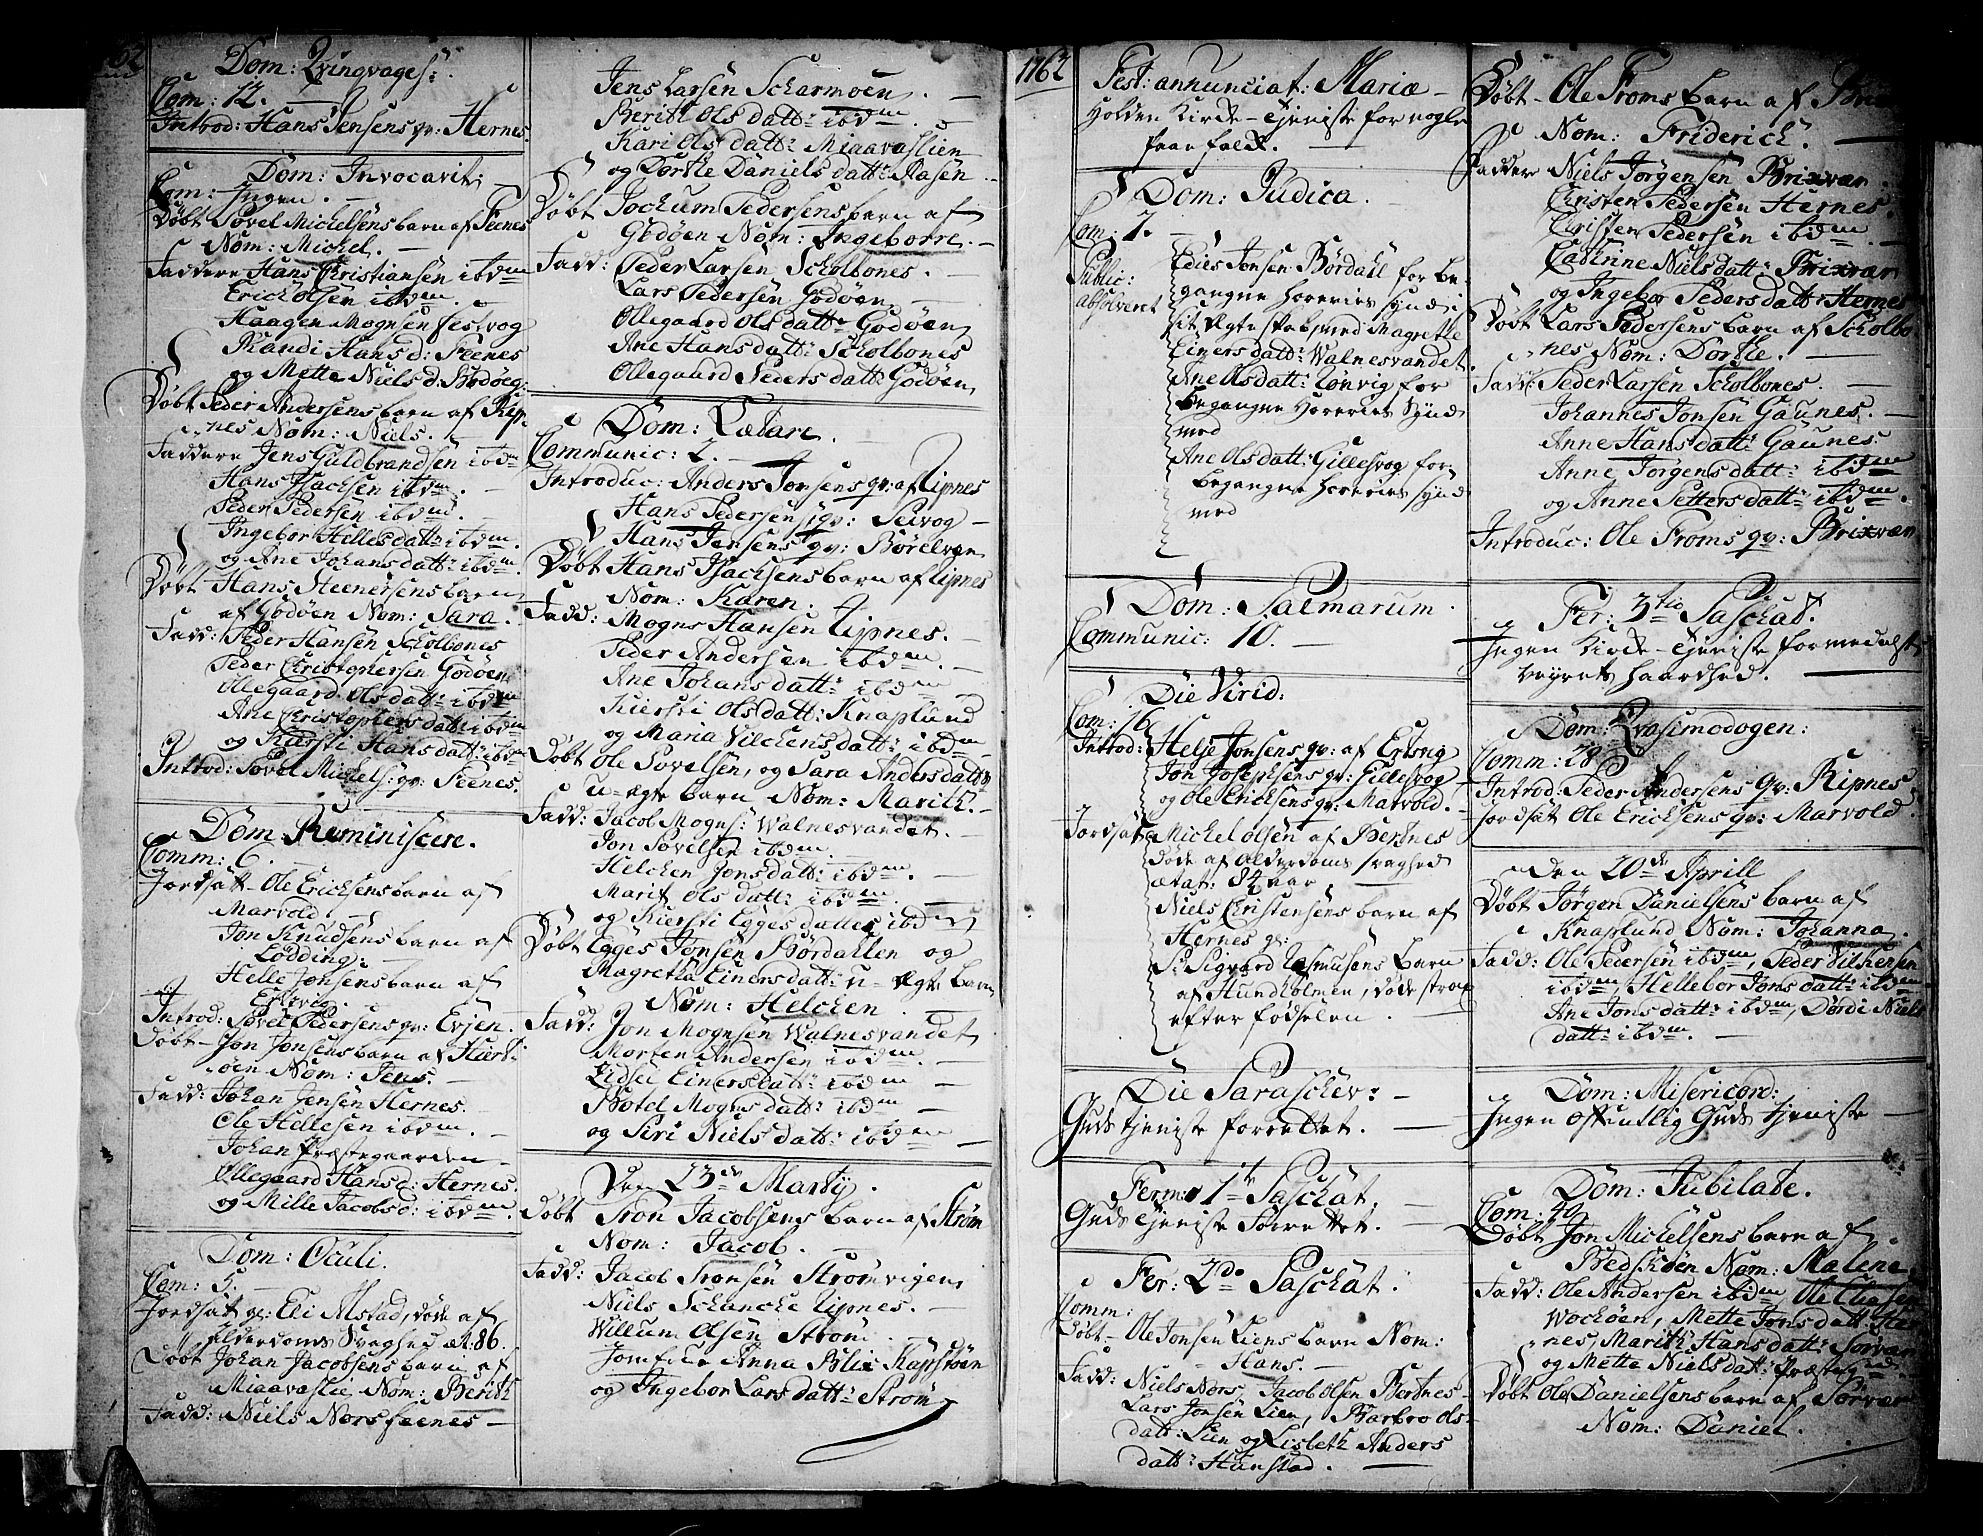 Dom: Qvinqvages:
Com: 12.
Introd: Hans Jensens qv: Hernes
Dom: Invocavit:
Com: Ingen.
Døbt Povel Michelsens barn af Feenes
Nom: Michel.
Faddere Hans Christiansen ibdm
Erich Olsen ibdm.
Haagen Mognsen Festvog
Randi Hansd: Feenes
og Mette Niels d: Bodøeg:
Døbt Peder Andersens barn af Rip-
nes Nom: Niels.
Faddere Jens Guldbrandsen ibdm
Hans Isachsen ibdm.
Peder Pedersen ibdm.
Ingebor Hellesdatt: ibdm.
og Ane Johansdatt: ibdm.
Døbt Hans Steenersens barn
af Godøen Nom: Sara.
Fadd: Peder Hansen Scholbones
Peder Christophersen Godøen
Ollegaard Olsdatt: ibdm
Ane Christophersdatt: ibdm
og Kiersti Hansdatt: ibdm
Introd: Povel Michels: qv: Feenes.
Dom: Reminiscere.
Comm: 6.
Jordsatt Ole Erichsens barn af
Marvold,
Jon Knudsens barn af
Lödding:
Helle Jonsens barn af
Introd: Povel Pedersens qv: Evjen.
Døbt Jon Jonsens barn af Hiert-
øen Nom: Jens.
Fadd: Johan Jensen Hernes.
Ole Hellesen ibdm.
Johan Præstegaarden
Ollegaard Hansd: Hernes.
og Mille Jacobsd: ibdm.
Dom: Oculi.
Com: 5.
Jordsat gl: Eli Alstad, døde af
Alderdoms Svaghed æt: 86.
Døbt Johan Jacobsens barn af
Miaavaslie, Nom: Berith
Fadd: Niels Nors Feenes
Jens Larsen Scharmoen.
Berith Olsdatt: ibdm.
Kari Olsdatt: Miaavaslien
og Dorthe Daniels datt: Aasen.
Døbt Jochum Pedersens barn af
Godøen Nom: Ingeborre.
Fadd: Peder Larsen Scholbones.
Lars Pedersen Godøen
Ollegaard Olsdatt: Godøen
Ane Hansdatt: Scholbones
Ollegaard Pedersdatt: Godøen
Dom: Lætare.
Communic: 2.
Introduc: Anders Jonsens qv: af Lipnes
Hans Pedersens qv: Seivog
Hans Jensens qv: Børelven
Døbt Hans Isachsens barn af Lipnes
Nom: Karen.
Fadd: Mogns Hansen Lipnes.
Peder Andersen ibdm.
Ane Johansdatt: ibdm
Kiersti Olsdatt: Knaplund
og Maria Vilchensdatt: ibdm
Døbt Ole Povelsen, og Sara Andersdatt:
u-ægte barn, Nom: Marith.
Fadd: Jacob Mogns: Walnesvandet.
Jon Povelsen ibdm.
Helchen Jonsdatt: ibdm.
Marit Olsdatt: ibdm.
og Kiersti Eggesdatter ibdm
Døbt Egges Jonsen Børdallen og
Magretha Einersdatt: u-ægte barn
Nom: Helchen
Fadd: Jon Mognsen Walnesvandet
Morten Andersen ibdm.
Zidsel Einersdatt: ibdm
Botel Mognsdatt: ibdm
og Siri Nielsdatt: ibdm
Den 23de Martij.
Døbt Tron Jacobsens barn af Strøm
Nom: Jacob.
Fadd: Jacob Tronsen Strømvigen
Niels Schanche Lipnes.
Willum Olsen Strøm
Jomfrue Anna Blix Kapstøen
og Ingebor Larsdatt: Strøm
1762
Fest: annunciat: Mariæ
Holden Kirke-Tjeniste for nogle
faae folck.
Dom: Judica.
Com: 7.
Public:
absolveret
Edies Jonsen Børdahl for be-
gangne horeries synd i
sit ægteskab med Magrethe
Einersdatt: Walnesvandet.
Ane Olsdatt: Lønvig for
Begangne Horeries Synd
med
Ane Olsdatt: Gillesvog for
begangne horeries synd
med
Dom: Palmarum.
Communic: 10.
Die Virid:
Com: 16
Introd: Helje Jonsens qv: af Ertvig
Jon Josephsens qv: Gillesvog
og Ole Erichsens qv: Marvold.
Jordsat Michel Olsen af Bertnes
døde af alderdoms svaghed
ætat: 84 aar
Niels Christensens barn af
Hernes
Sr Sigvard Rasmusens Barn
af Hundholmen, døde strax
efter fødselen.
Die Paraschev:
Gudstjeniste forrettet.
Feriæ 1te Paschat.
Guds Tjeniste Forrettet.
Fer: 2de Paschat.
Comm:
Døbt Ole Jonsen Liens barn Nom:
Hans.
Fadd: Niels Nors, Jacob Olsen Bertnes
Lars Jonsen Lien, Barbro Ols-
datt: Lien og Lisbeth Anders
datt: Hunstad.
Døbt Ole Froms barn af
Nom: Friderich.
Faddere Niels Jørgensen Brixvær
Christen Pedersen Hernes.
Christen Pedersen ibdm
Cathrine Nielsdatt: Brixvær
og Ingebor Pedersdatt: Hernes
Døbt Lars Pedersens barn af Scholbo-
nes Nom: Dorthe.
Fadd: Peder Larsen Scholbones.
Johannes Jonsen Gaunes.
Anne Hansdatt: Gaunes
Anne Jørgensdatt: ibdm
og Anne Pettersdatt: ibdm.
Introduc: Ole Froms qv: Brixvær
Fer: 3tie Paschat.
Ingen Kirke-Tjeniste formedelst
veyrets haardhed.
Dom: Qvasimodogen:
Comm: 28
Introd: Peder Andersens Qv: Ripnes
Jordsat Ole Erichsens qv: Marvold.
Den 20de Aprill
Døbt Jørgen Danielsens barn af
Knaplund Nom: Johanna.
Fadd: Ole Pedersen ibdm, Peder Vilchensen
ibdm, Hellebor Jonsdatt: ibdm
Ane Jonsdatt: ibdm, Dordi Niels
datt: ibdm.
Dom: Misericord:
Ingen Offentlig Guds tjeniste
Dom: Jubilate.
Com: 49
Døbt Jon Michelsens barn af
Bredschøen Nom: Malene.
Fadd: Ole Andersen ibdm
Wochøen, Mette Jonsdatt: Her-
nes, Marith Hansdatt: Sørvær
og Mette Nielsdat:
Døbt Ole Danielsens barn af Sørvær
Nom: Daniel.